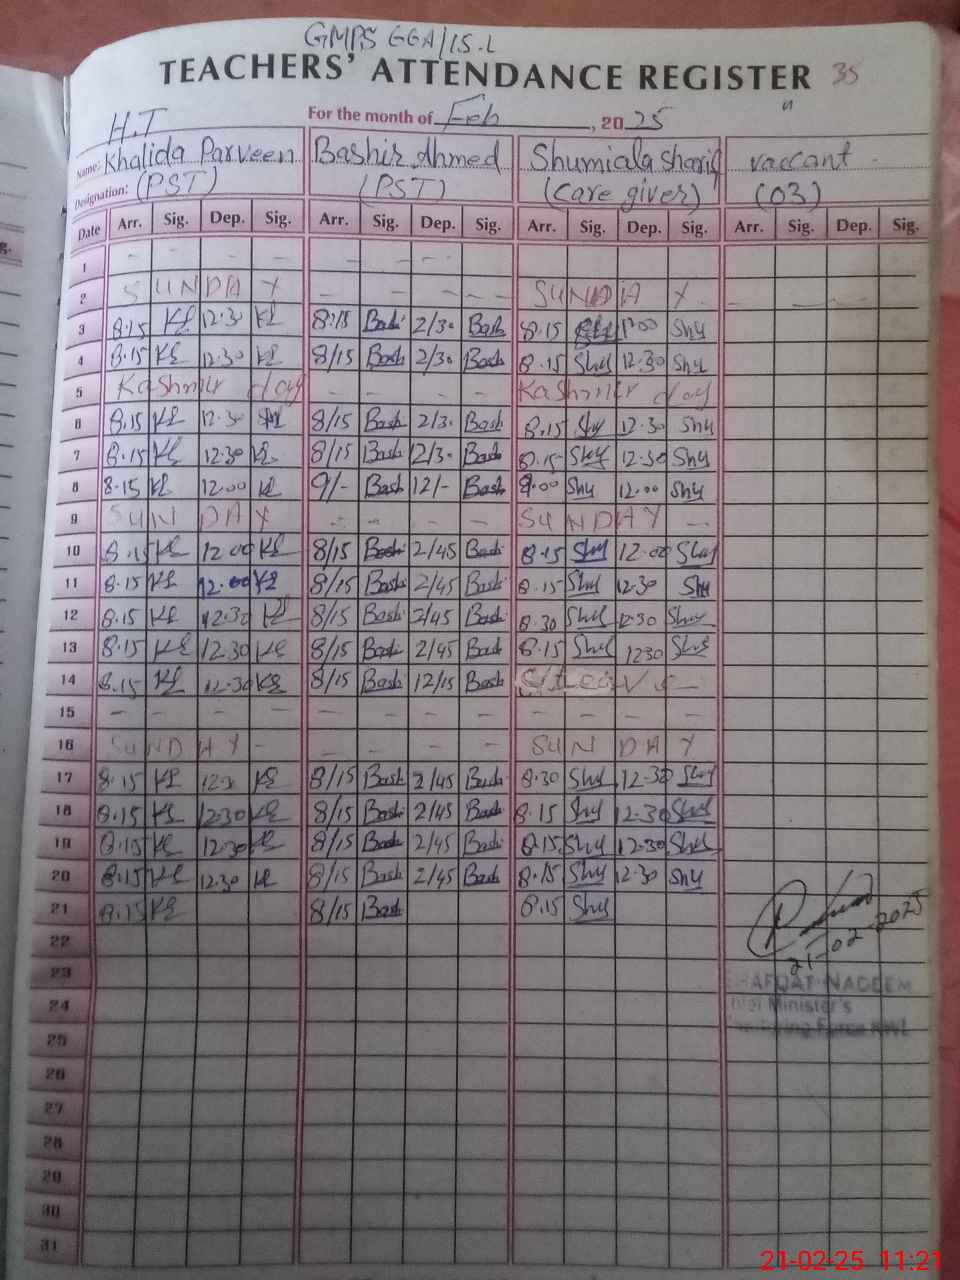 GMPS 66A/15.L
TEACHERS' ATTENDANCE REGISTER 35
For the month of Feb, 2025
H.T
Name: Khalida Parveen Bashir Ahmed Shumiala Sharif vaccant
Designation: (PST) (PST) (Care giver) (03)
Date Arr. Sig. Dep. Sig. Arr. Sig. Dep. Sig. Arr. Sig. Dep. Sig. Arr. Sig. Dep. Sig.
1 - - - - - - - -
2 SUNDAY - - - - SUNDAY - -
3 8.15 12.30 8/15 Bash 2/30 Bash 8.15 Shy
4 8.15 12.30 8/15 Bash 2/30 Bash 8.15 Shy 12.30 Shy
5 Kashmir day - - - - Kashmir day
6 8.15 12.30 8/15 Bash 2/30 Bash 8.15 Shy 12.30 Shy
7 8.15 12.30 8/15 Bash 2/30 Bash 8.15 Shy 12.30 Shy
8 8.15 12.00 9/- Bash 12/- Bash 9.00 Shy 12.00 Shy
9 SUNDAY - - - - SUNDAY -
10 8.15 12.00 8/15 Bash 2/45 Bash 8.15 Shy 12.00 Shy
11 8.15 12.00 8/15 Bash 2/45 Bash 8.15 Shy 12.30 Shy
12 8.15 12.30 8/15 Bash 2/45 Bash 8.30 Shy 12.30 Shy
13 8.15 12.30 8/15 Bash 2/45 Bash 8.15 Shy 1230 Shy
14 8.15 12.30 8/15 Bash 12/15 Bash C/Leave
15 - - - - - - - - - - - -
16 SUNDAY - - - - - SUNDAY
17 8.15 8/15 Bash 2/45 Bash 8.30 Shy 12.30 Shy
18 8.15 12.30 8/15 Bash 2/45 Bash 8.15 Shy 12.30 Shy
19 8.15 12.30 8/15 Bash 2/45 Bash 8.15 Shy 12.30 Shy
20 8.15 12.30 8/15 Bash 2/45 Bash 8.15 Shy 12.30 Shy
21 8.15 8/15 Bash 8.15 Shy
22
21-02-2025
23
HAFQAT NADEEM
24
Minister's
25
Force KWL
26
27
28
29
30
31
21-02-25 11:21